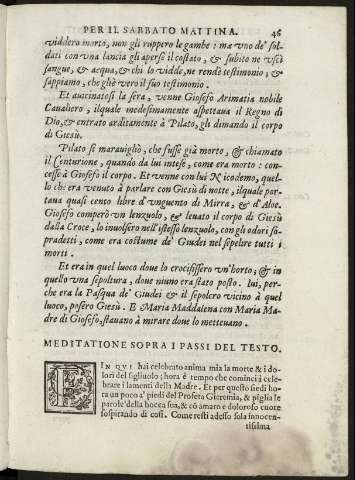 PER IL SABBATO MATTINA. 46
viddero morto, non gli ruppero le gambe: ma vno de' sol-
dati con vna lancia gli aperse il costato, & subito ne vscì
sangue, & acqua, & chi lo vidde, ne rende testimonio, &
sappiamo, che gliè vero il suo testimonio.
Et auicinatosi la sera, venne Giosefo Arimatia nobile
Caualiero, ilquale medesimamente aspettaua il Regno di
Dio, & entrato arditamente à Pilato, gli dimando il corpo
di Giesù.
Pilato si marauigliò, che fusse già morto, & chiamato
il Centurione, quando da lui intese, come era morto: con-
cesse à Giosefo il corpo. Et venne con lui Nicodemo, quel-
lo che era venuto à parlare con Giesù di notte, ilquale por-
taua quasi cento libre d'vnguento di Mirra, & d'Aloe.
Giosefo comperò vn lenzuolo, & leuato il corpo di Giesù
dalla Croce, lo inuolsero nell'istesso lenzuolo, con gli odori so-
pradetti, come era costume de' Giudei nel sepelire tutti i
morti.
Et era in quel luoco doue lo crocifissero vn'horto; & in
quello vna sepoltura, doue niuno era stato posto. lui, per-
che era la Pasqua de' Giudei & il sepolcro vicino à quel
luoco, posero Giesù. E Maria Maddalena con Maria Ma-
dre di Giosefo, stauano à mirare doue lo metteuano.
MEDITATIONE SOPRA I PASSI DEL TESTO.
FIN QVI hai celebrato anima mia la morte & i do-
lori del figliuolo; hora è tempo che cominci à cele-
brare i lamenti della Madre. Et per questo siedi ho
ra vn poco a' piedi del Profeta Gieremia, & piglia le
parole della bocca sua, & cō amaro e doloroso cuore
sospirando di così. Come resti adesso sola innocen-
tissima